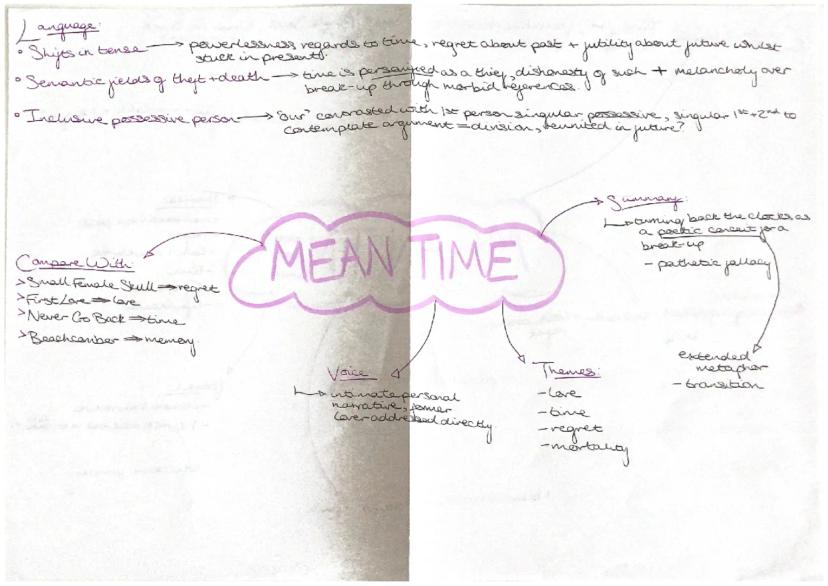 Language:
• Shifts in tense → powerlessness regards to time, regret about past + futility about future whilst
stuck in present.
• Semantic fields of theft + death → time is personified as a thief, dishonesty of such + melancholy over
break-up through morbid references.
• Inclusive possessive person → 'our' contrasted with 1st person singular possessive, singular 1st + 2nd to
contemplate argument = division, reunited in future?
Summary:
↳ turning back the clocks as
a poetic conceit for a
break-up
- pathetic fallacy
extended
metaphor
- transition
MEAN TIME
Compare With:
> Small Female Skull ⇒ regret
> First Love ⇒ love
> Never Go Back ⇒ time
> Beachcomber ⇒ memory
Voice
↳ intimate personal
narrative, former
lover addressed directly.
Themes:
- love
- time
- regret
- mortality